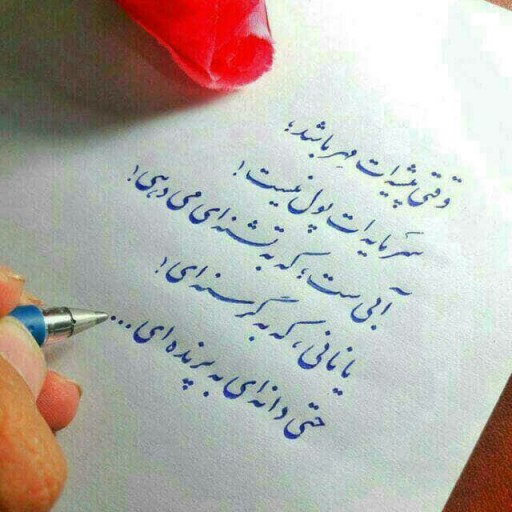 وقتی پیشه ات مِهر باشد؛
سَرمایه ات پول نیست!
آبی ست، که به تشنه ای می دهی!
یا نانی، که به گرسنه ای!
حتی دانه ای به پرنده ای...